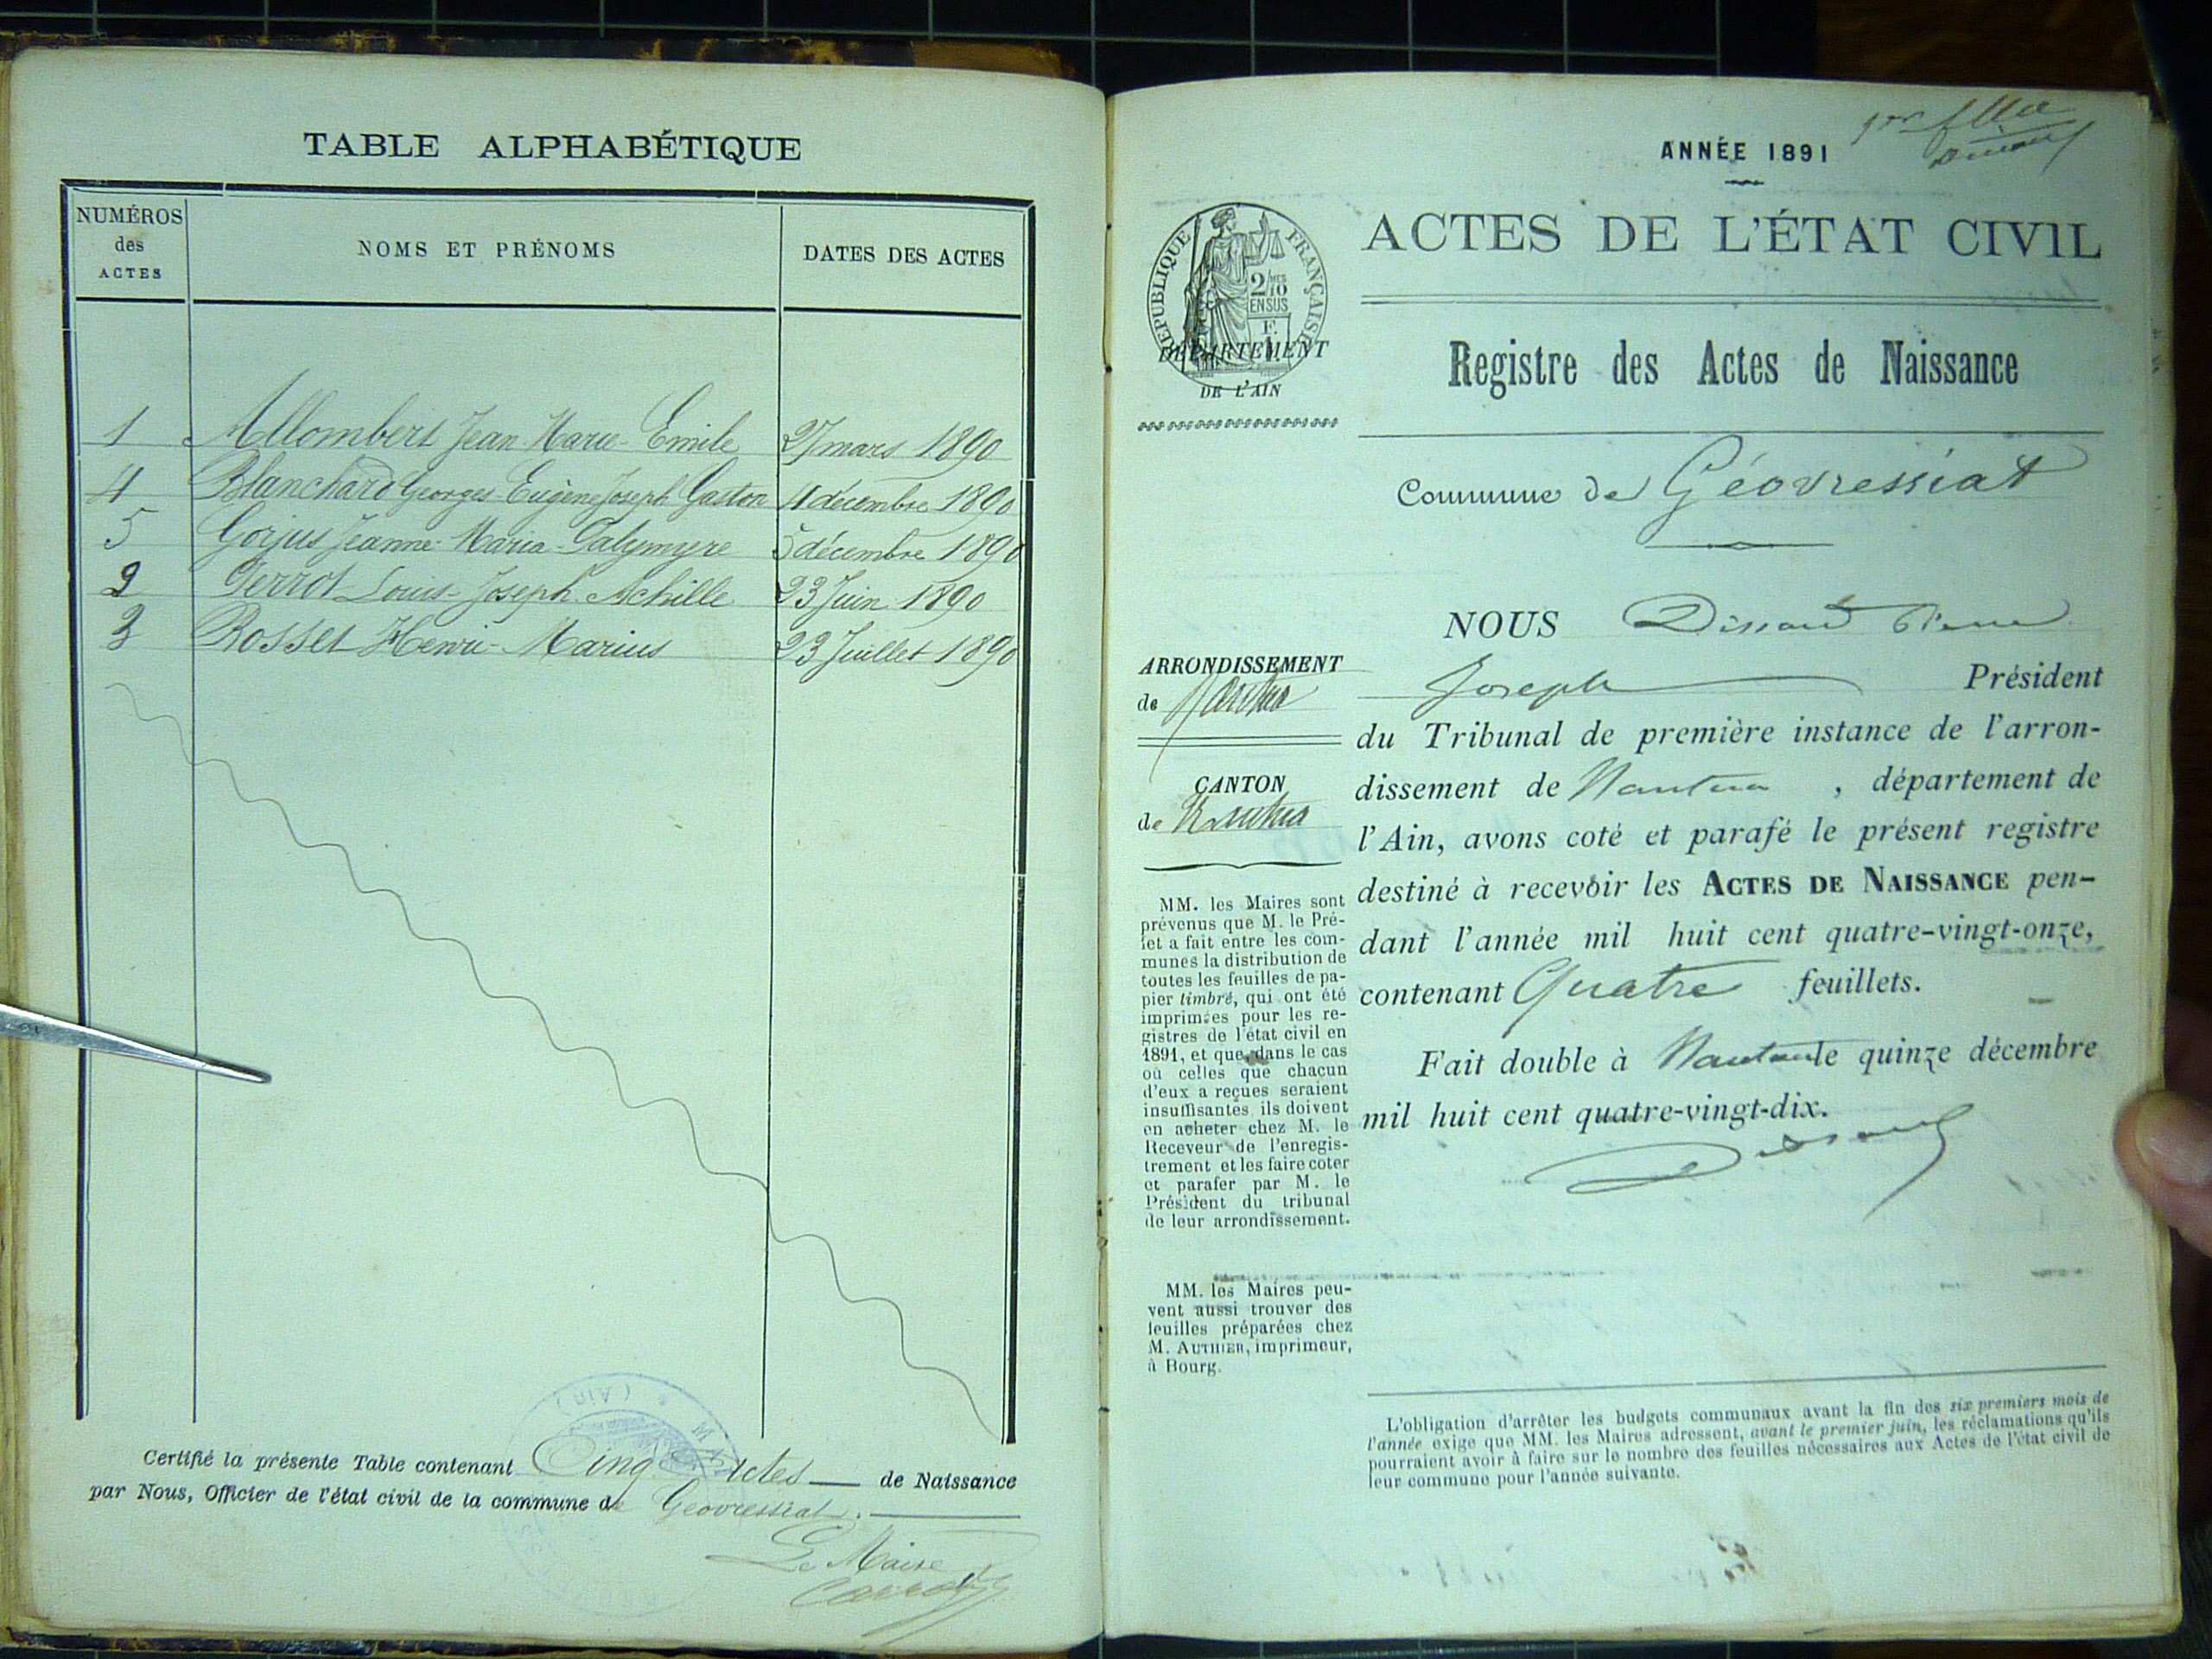 TABLE ALPHABÉTIQUE
NUMÉROS
des
ACTES
NOMS ET PRÉNOMS
DATES DES ACTES
1 Allombert Jean Marie Emile 27 mars 1890
4 Blanchard Georges Eugène Joseph Gaston 4 décembre 1890
5 Gorjus Jeanne Maria Palymyre 5 décembre 1890
2 Perrot Louis Joseph Achille 23 Juin 1890
3 Rosset Henri Marius 23 Juillet 1890
(AIN)
Certifié la présente Table contenant Cinq Actes de Naissance
par Nous, Officier de l'état civil de la commune de Géovressiat.
Le Maire
ANNÉE 1891
RÉPUBLIQUE FRANÇAISE
2/10
MES
EN SUS
DÉPARTEMENT
DE L'AIN
ACTES DE L'ÉTAT CIVIL
Registre des Actes de Naissance
Commune de Géovressiat
ARRONDISSEMENT
de Nantua
CANTON
de Nantua
MM. les Maires sont
prévenus que M. le Pré-
fet a fait entre les com-
munes la distribution de
toutes les feuilles de pa-
pier timbré, qui ont été
imprimées pour les re-
gistres de l'état civil en
1891, et que dans le cas
où celles que chacun
d'eux a reçues seraient
insuffisantes ils doivent
en acheter chez M. le
Receveur de l'enregis-
trement et les faire coter
et parafer par M. le
Président du tribunal
de leur arrondissement.
MM. les Maires peu-
vent aussi trouver des
feuilles préparées chez
M. AUTHIER, imprimeur,
à Bourg.
NOUS
Joseph Président
du Tribunal de première instance de l'arron-
dissement de Nantua , département de
l'Ain, avons coté et parafé le présent registre
destiné à recevoir les ACTES DE NAISSANCE pen-
dant l'année mil huit cent quatre-vingt-onze,
contenant Quatre feuillets.
Fait double à Nantua le quinze décembre
mil huit cent quatre-vingt-dix.
L'obligation d'arrêter les budgets communaux avant la fin des six premiers mois de
l'année exige que MM. les Maires adressent, avant le premier juin, les réclamations qu'ils
pourraient avoir à faire sur le nombre des feuilles nécessaires aux Actes de l'état civil de
leur commune pour l'année suivante.